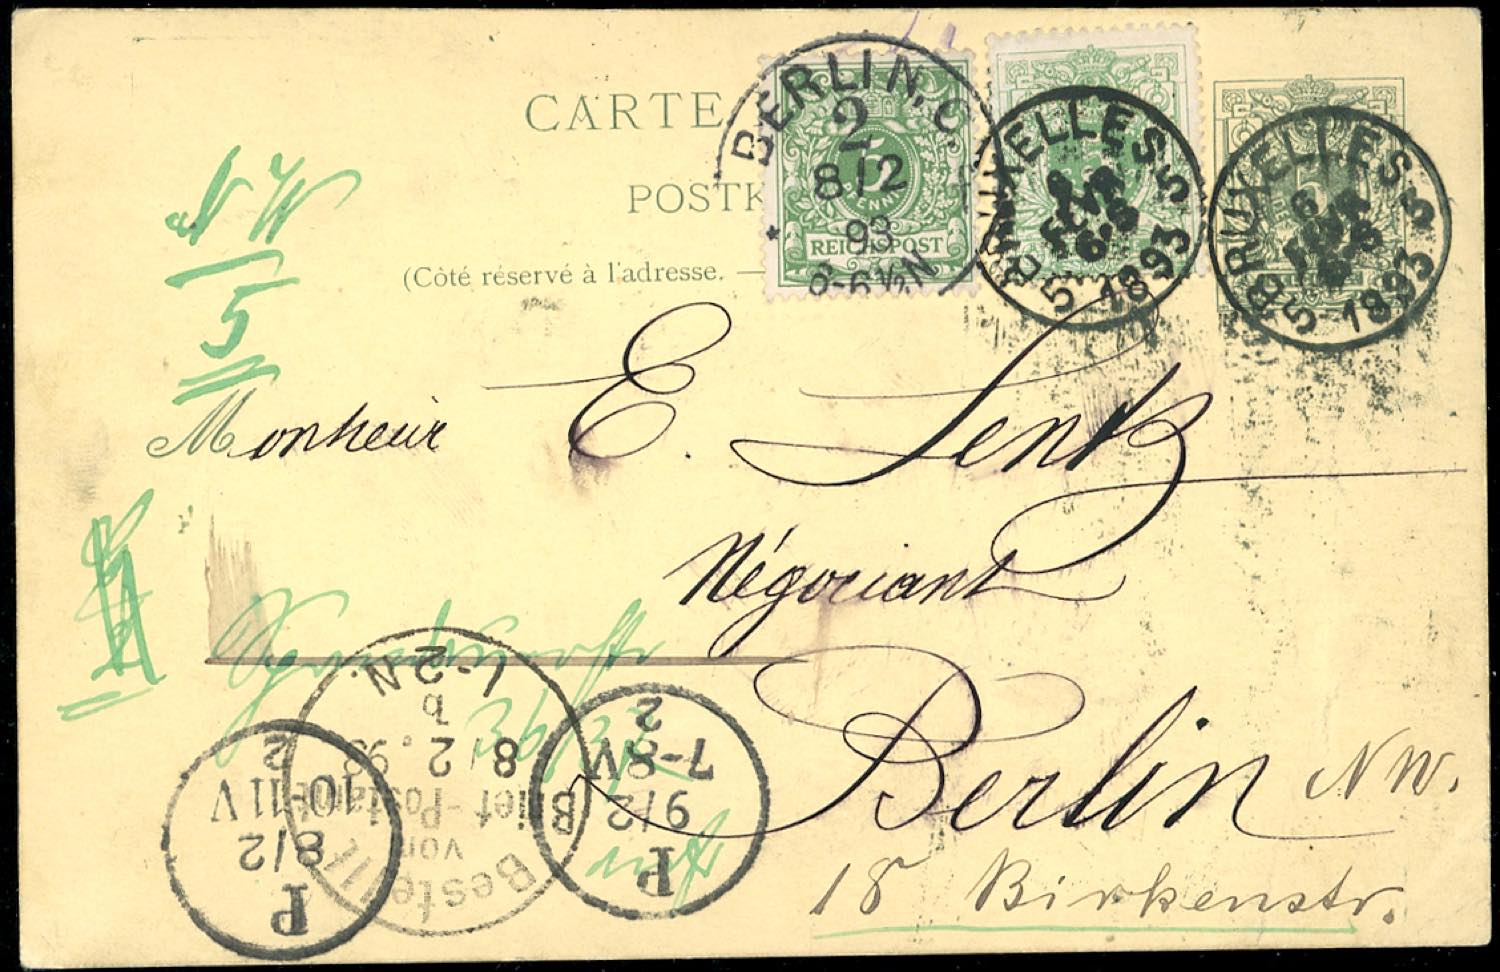 CARTE
POSTK
(Côté réservé à l'adresse.
BERLIN, C.
2
8/2
93
6-6½N
*
5
PFENNIG
REICHSPOST
BRUXELLES 5
5 1893
BRUXELLES 5
6
5 1893
N W
5
Monsieur E. Lentz
Négociant
Berlin NW.
18 Birkenstr.
1-2N.
b
8/2.93
Brief-Postamt
von
Bestellt
P
9/2
7-8V
2
P
8/2
10-11V
2